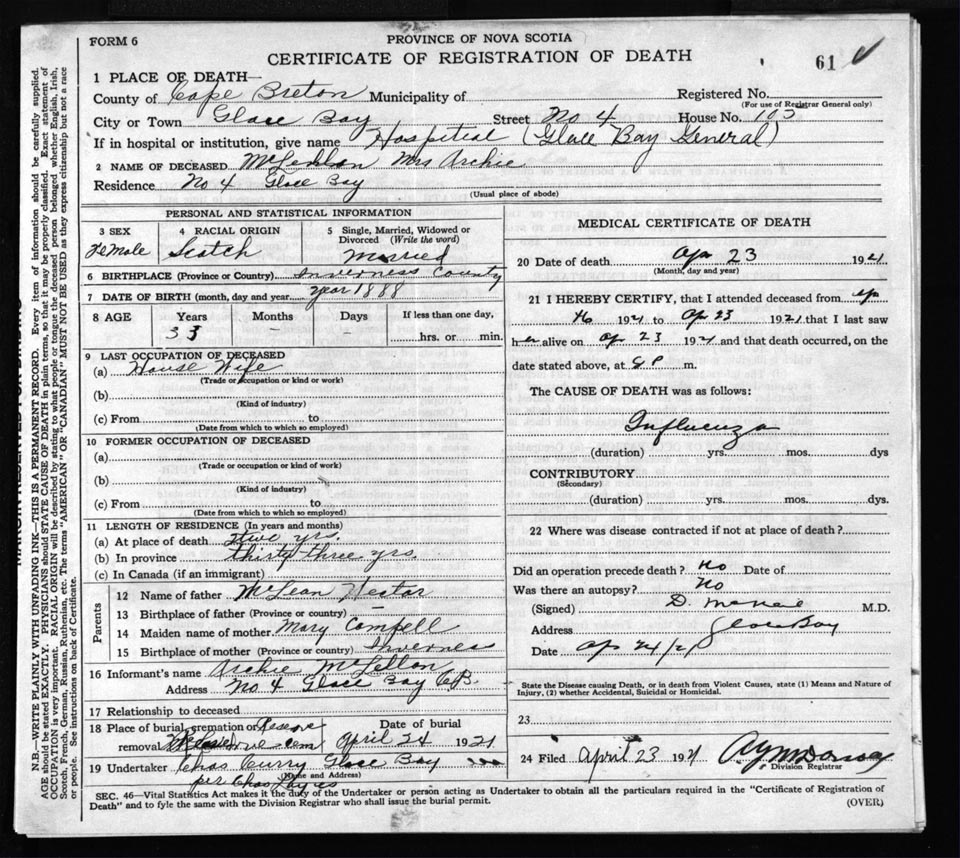 FORM 6
PROVINCE OF NOVA SCOTIA
CERTIFICATE OF REGISTRATION OF DEATH
61
1 PLACE OF DEATH—
County of Cape Breton Municipality of Registered No.
(For use of Registrar General only)
City or Town Glace Bay Street No 4 House No. 103
If in hospital or institution, give name Hospital (Glace Bay General)
2 NAME OF DECEASED McLellan Mrs Archie
Residence No 4 Glace Bay
(Usual place of abode)
PERSONAL AND STATISTICAL INFORMATION
3 SEX 4 RACIAL ORIGIN 5 Single, Married, Widowed or Divorced (Write the word)
Female Scotch Married
6 BIRTHPLACE (Province or Country) Inverness County
7 DATE OF BIRTH (month, day and year) year 1888
8 AGE Years Months Days If less than one day,
33 - - hrs. or min.
9 LAST OCCUPATION OF DECEASED
(a) House Wife
(Trade or occupation or kind of work)
(b)
(Kind of industry)
(c) From to
(Date from which to which so employed)
10 FORMER OCCUPATION OF DECEASED
(a)
(Trade or occupation or kind of work)
(b)
(Kind of industry)
(c) From to
(Date from which to which so employed)
11 LENGTH OF RESIDENCE (In years and months)
(a) At place of death two yrs.
(b) In province thirty three yrs.
(c) In Canada (if an immigrant)
Parents
12 Name of father McLean Hector
13 Birthplace of father (Province or country) —
14 Maiden name of mother Mary Campell
15 Birthplace of mother (Province or country) Inverness
16 Informant's name Archie McLellan
Address No 4 Glace Bay C.B.
17 Relationship to deceased
18 Place of burial, cremation or removal Reserve cem Date of burial April 24 1921
19 Undertaker Chas Curry Glace Bay
(Name and Address)
per Chas
MEDICAL CERTIFICATE OF DEATH
20 Date of death Apr 23 1921
(Month, day and year)
21 I HEREBY CERTIFY, that I attended deceased from Ap
16 1921 to Apr 23 1921 that I last saw
her alive on Apr 23 1921 and that death occurred, on the
date stated above, at P m.
The CAUSE OF DEATH was as follows:
Influenza
(duration) yrs. mos. dys
CONTRIBUTORY
(Secondary)
(duration) yrs. mos. dys.
22 Where was disease contracted if not at place of death?
Did an operation precede death? No Date of
Was there an autopsy? No
(Signed) D. M.D.
Address Glace Bay
Date Ap 24/21
State the Disease causing Death, or in death from Violent Causes, state (1) Means and Nature of
Injury, (2) whether Accidental, Suicidal or Homicidal.
23
24 Filed April 23 1921
Division Registrar
SEC. 46—Vital Statistics Act makes it the duty of the Undertaker or person acting as Undertaker to obtain all the particulars required in the "Certificate of Registration of
Death" and to fyle the same with the Division Registrar who shall issue the burial permit. (OVER)
N.B.—WRITE PLAINLY WITH UNFADING INK—THIS IS A PERMANENT RECORD. Every item of information should be carefully supplied.
AGE should be stated EXACTLY. PHYSICIANS should STATE CAUSE OF DEATH in plain terms, so that it may be properly classified. Exact statement of
OCCUPATION is very important. RACIAL ORIGIN will be described by stating to what people or tongue the deceased person belonged whether English, Irish,
Scotch, French, German, Russian, Ruthenian, etc. The terms "AMERICAN" OR "CANADIAN" MUST NOT BE USED as they express citizenship but not a race
or people. See instructions on back of Certificate.